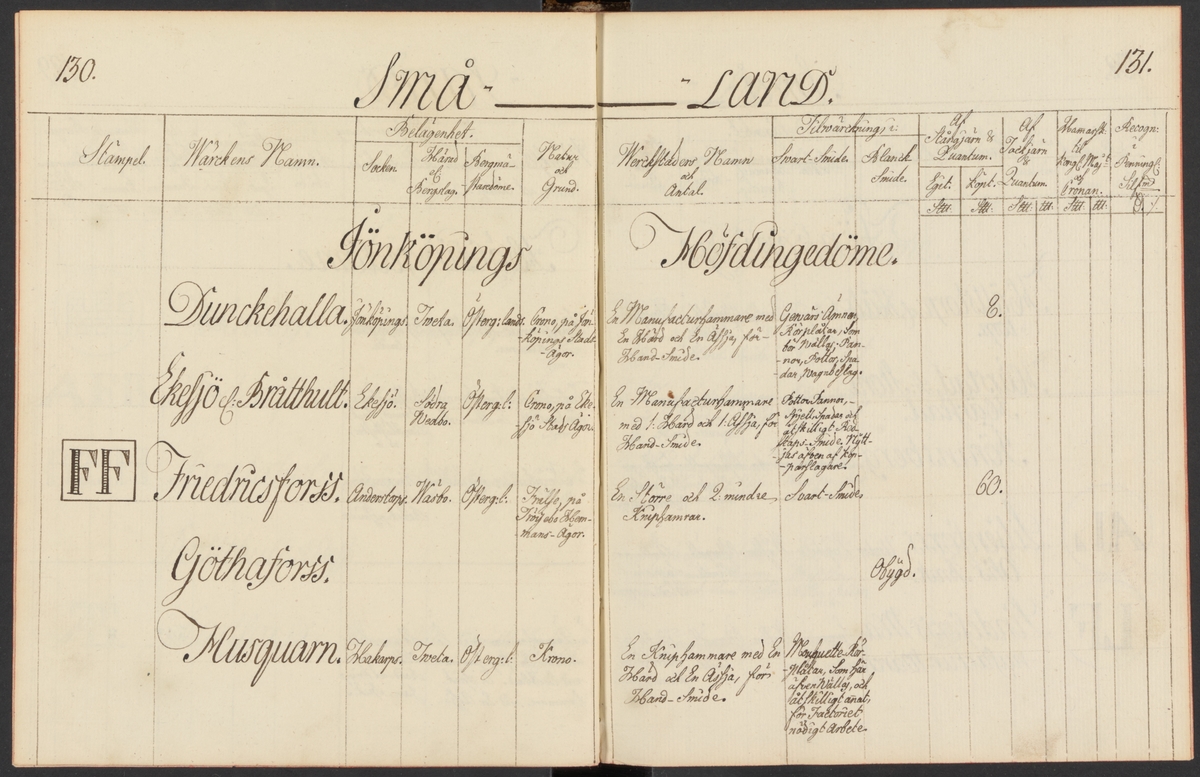 130.
131.
Små-
-Land.
Stämpel.
Wärckens Namn.
Belägenhet.
Socken.
Härad
och
Bergslag.
Bergmä-
staredöme.
Natur
och
Grund.
Werckstäders Namn
och
Antal.
Tilwärcknings:
Svart-Smide.
Blanck
Smide.
Af
Stångjärn &
Quantum.
Eget.
Köpt.
Stt.
Stt.
Af
Tackjärn
&
Quantum.
Stt.
tt.
Hamarsk.
til
Kongl. Maj:t
och
Cronan.
Stt.
tt.
Recogn:
i
Penning
Silf.
D.
Jönköpings
Höfdingedöme.
Dunckehalla.
Jönköpings.
Tweta.
Österg:land.
Crono, på Jön-
köpings Stads-
-Ägor.
En Manufacturhammare med
En Härd och En Ässja, för-
Hand-Smide.
Gevärs Ämnen,
Rörplåtar, som
här Wällas, Pan-
nor, Pottor, Spa-
dar, Wagnbeslag.
8.
Ekesjö el: Brätthult.
Ekesjö.
Södra
Wedbo.
Österg:l:
Crono, på Eke-
sjö Stads Ägor.
En Manufacturhammare
med 1. Härd och 1. Ässja, för
Hand-Smide.
Pottor, Pannor, -
Spadar och
åtskilligt Red-
skaps-Smide. Nytt-
jas äfven af Kop-
parslagare.
FF
Friedricsforss.
Anderstorps.
Wäsbo.
Österg:l:
Frälse, på
Hem-
mans-Ägor.
En Större och 2. mindre
Kniphamrar.
Svart-Smide.
60.
Göthaforss.
Obygd.
Husquarn.
Hakarps.
Tweta.
Österg:l:
Krono.
En Kniphammare med En
Härd och En Ässja, för
Hand-Smide.
Mousquette Rör-
Plåtar, som här
äfven Wällas, och
åtskilligt annat,
för Factoriet
nödigt Arbete.